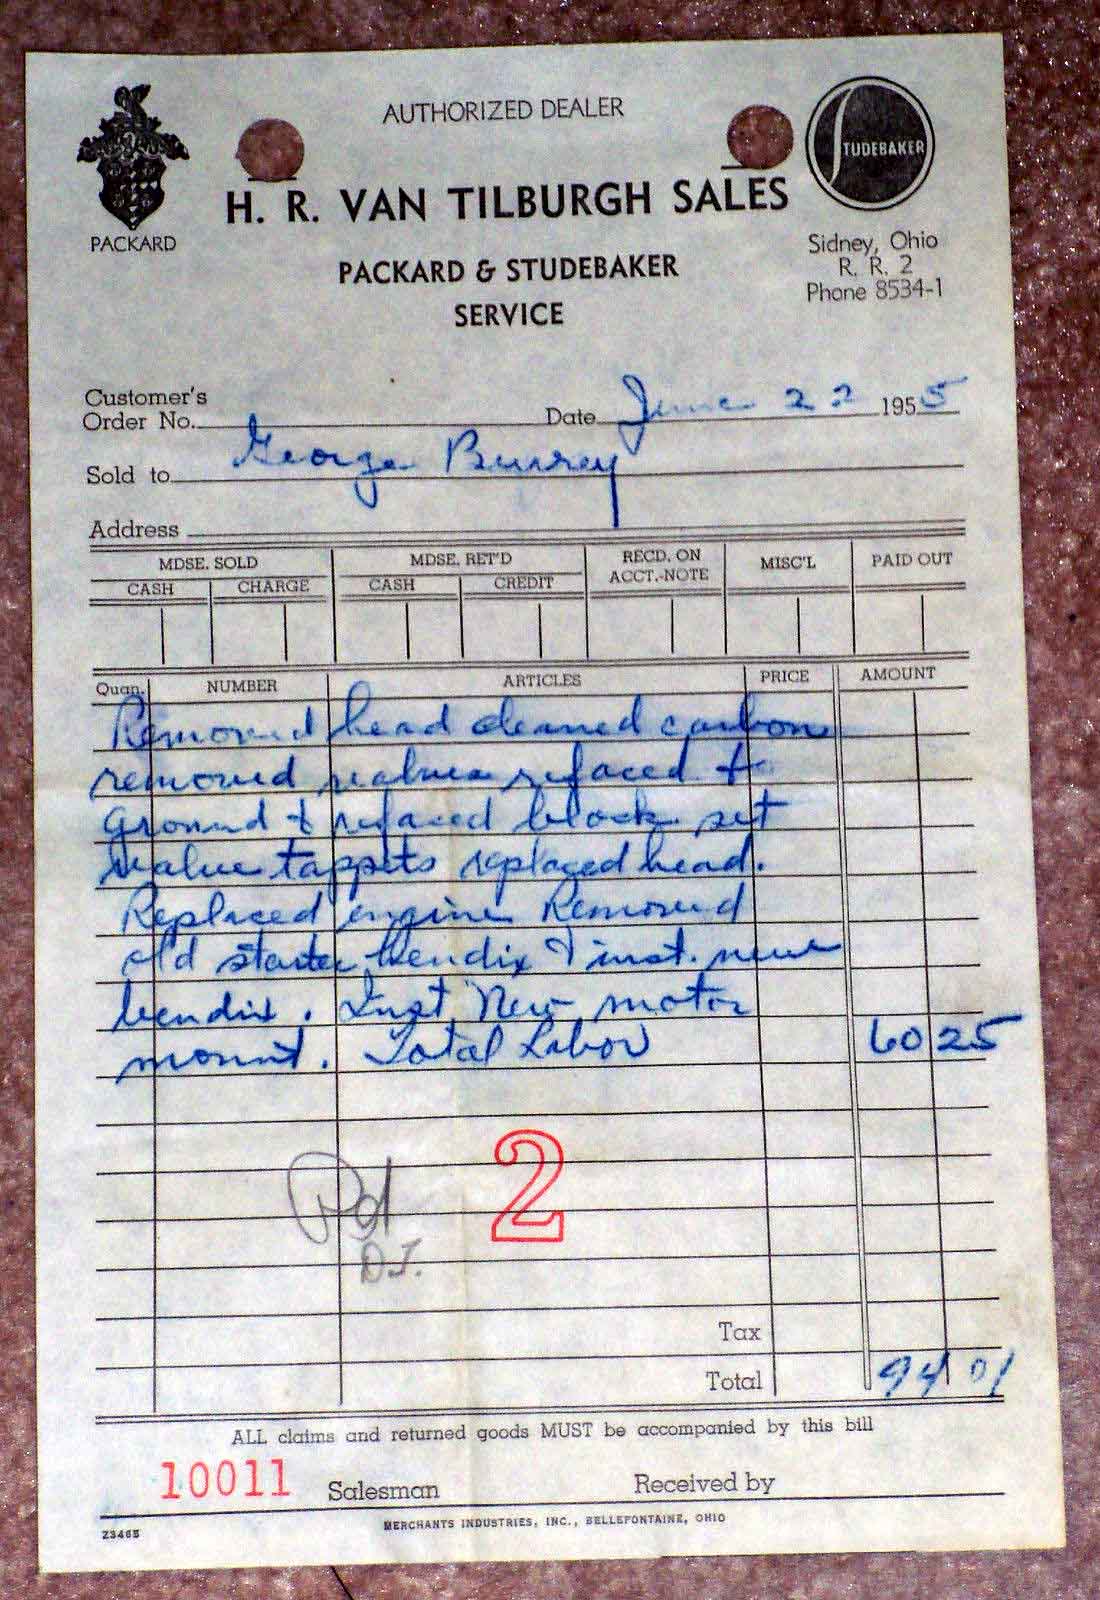 AUTHORIZED DEALER
STUDEBAKER
H. R. VAN TILBURGH SALES
PACKARD
Sidney, Ohio
R. R. 2
Phone 8534-1
PACKARD & STUDEBAKER
SERVICE
Customer's
Order No.
Date June 22 1955
Sold to George
Address
MDSE. SOLD MDSE. RET'D RECD. ON ACCT.-NOTE MISC'L PAID OUT
CASH CHARGE CASH CREDIT
Quan. NUMBER ARTICLES PRICE AMOUNT
Removed head cleaned carbon
removed valves refaced
Ground & refaced block set
valve tappits replaced head.
Replaced engine Removed
old starter bendix & inst. new
bendix. Inst New motor
mount. Total Labor 60 25
Pd
D.J.
2
Tax
Total 94 01
ALL claims and returned goods MUST be accompanied by this bill
10011 Salesman Received by
Z3465 MERCHANTS INDUSTRIES, INC., BELLEFONTAINE, OHIO